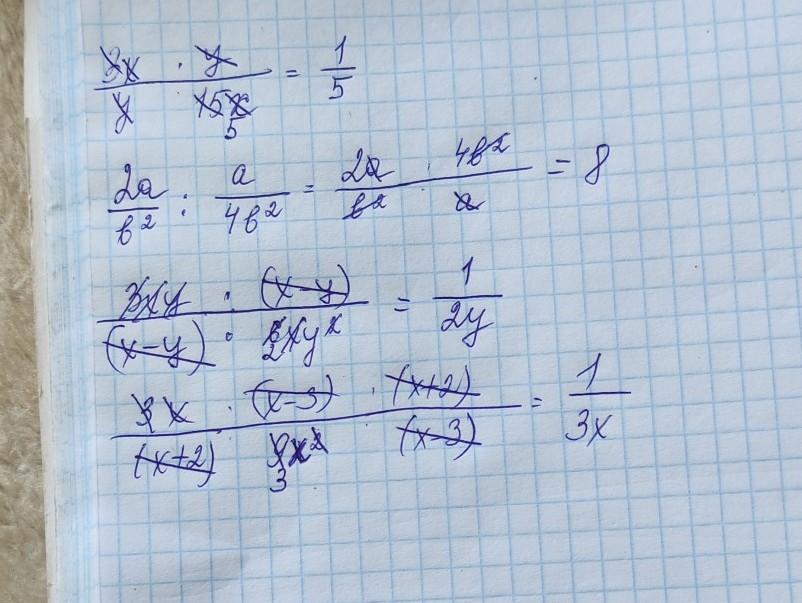 3x · y / y · 15x 5 = 1/5
2a/b² : a/4b² = 2a · 4b² / b² · a = 8
3xy · (x-y) / (x-y) · 6xy² 2 = 1/2y
3x · (x-3) · (x+2) / (x+2) · 9x² · (x-3) 3 = 1/3x